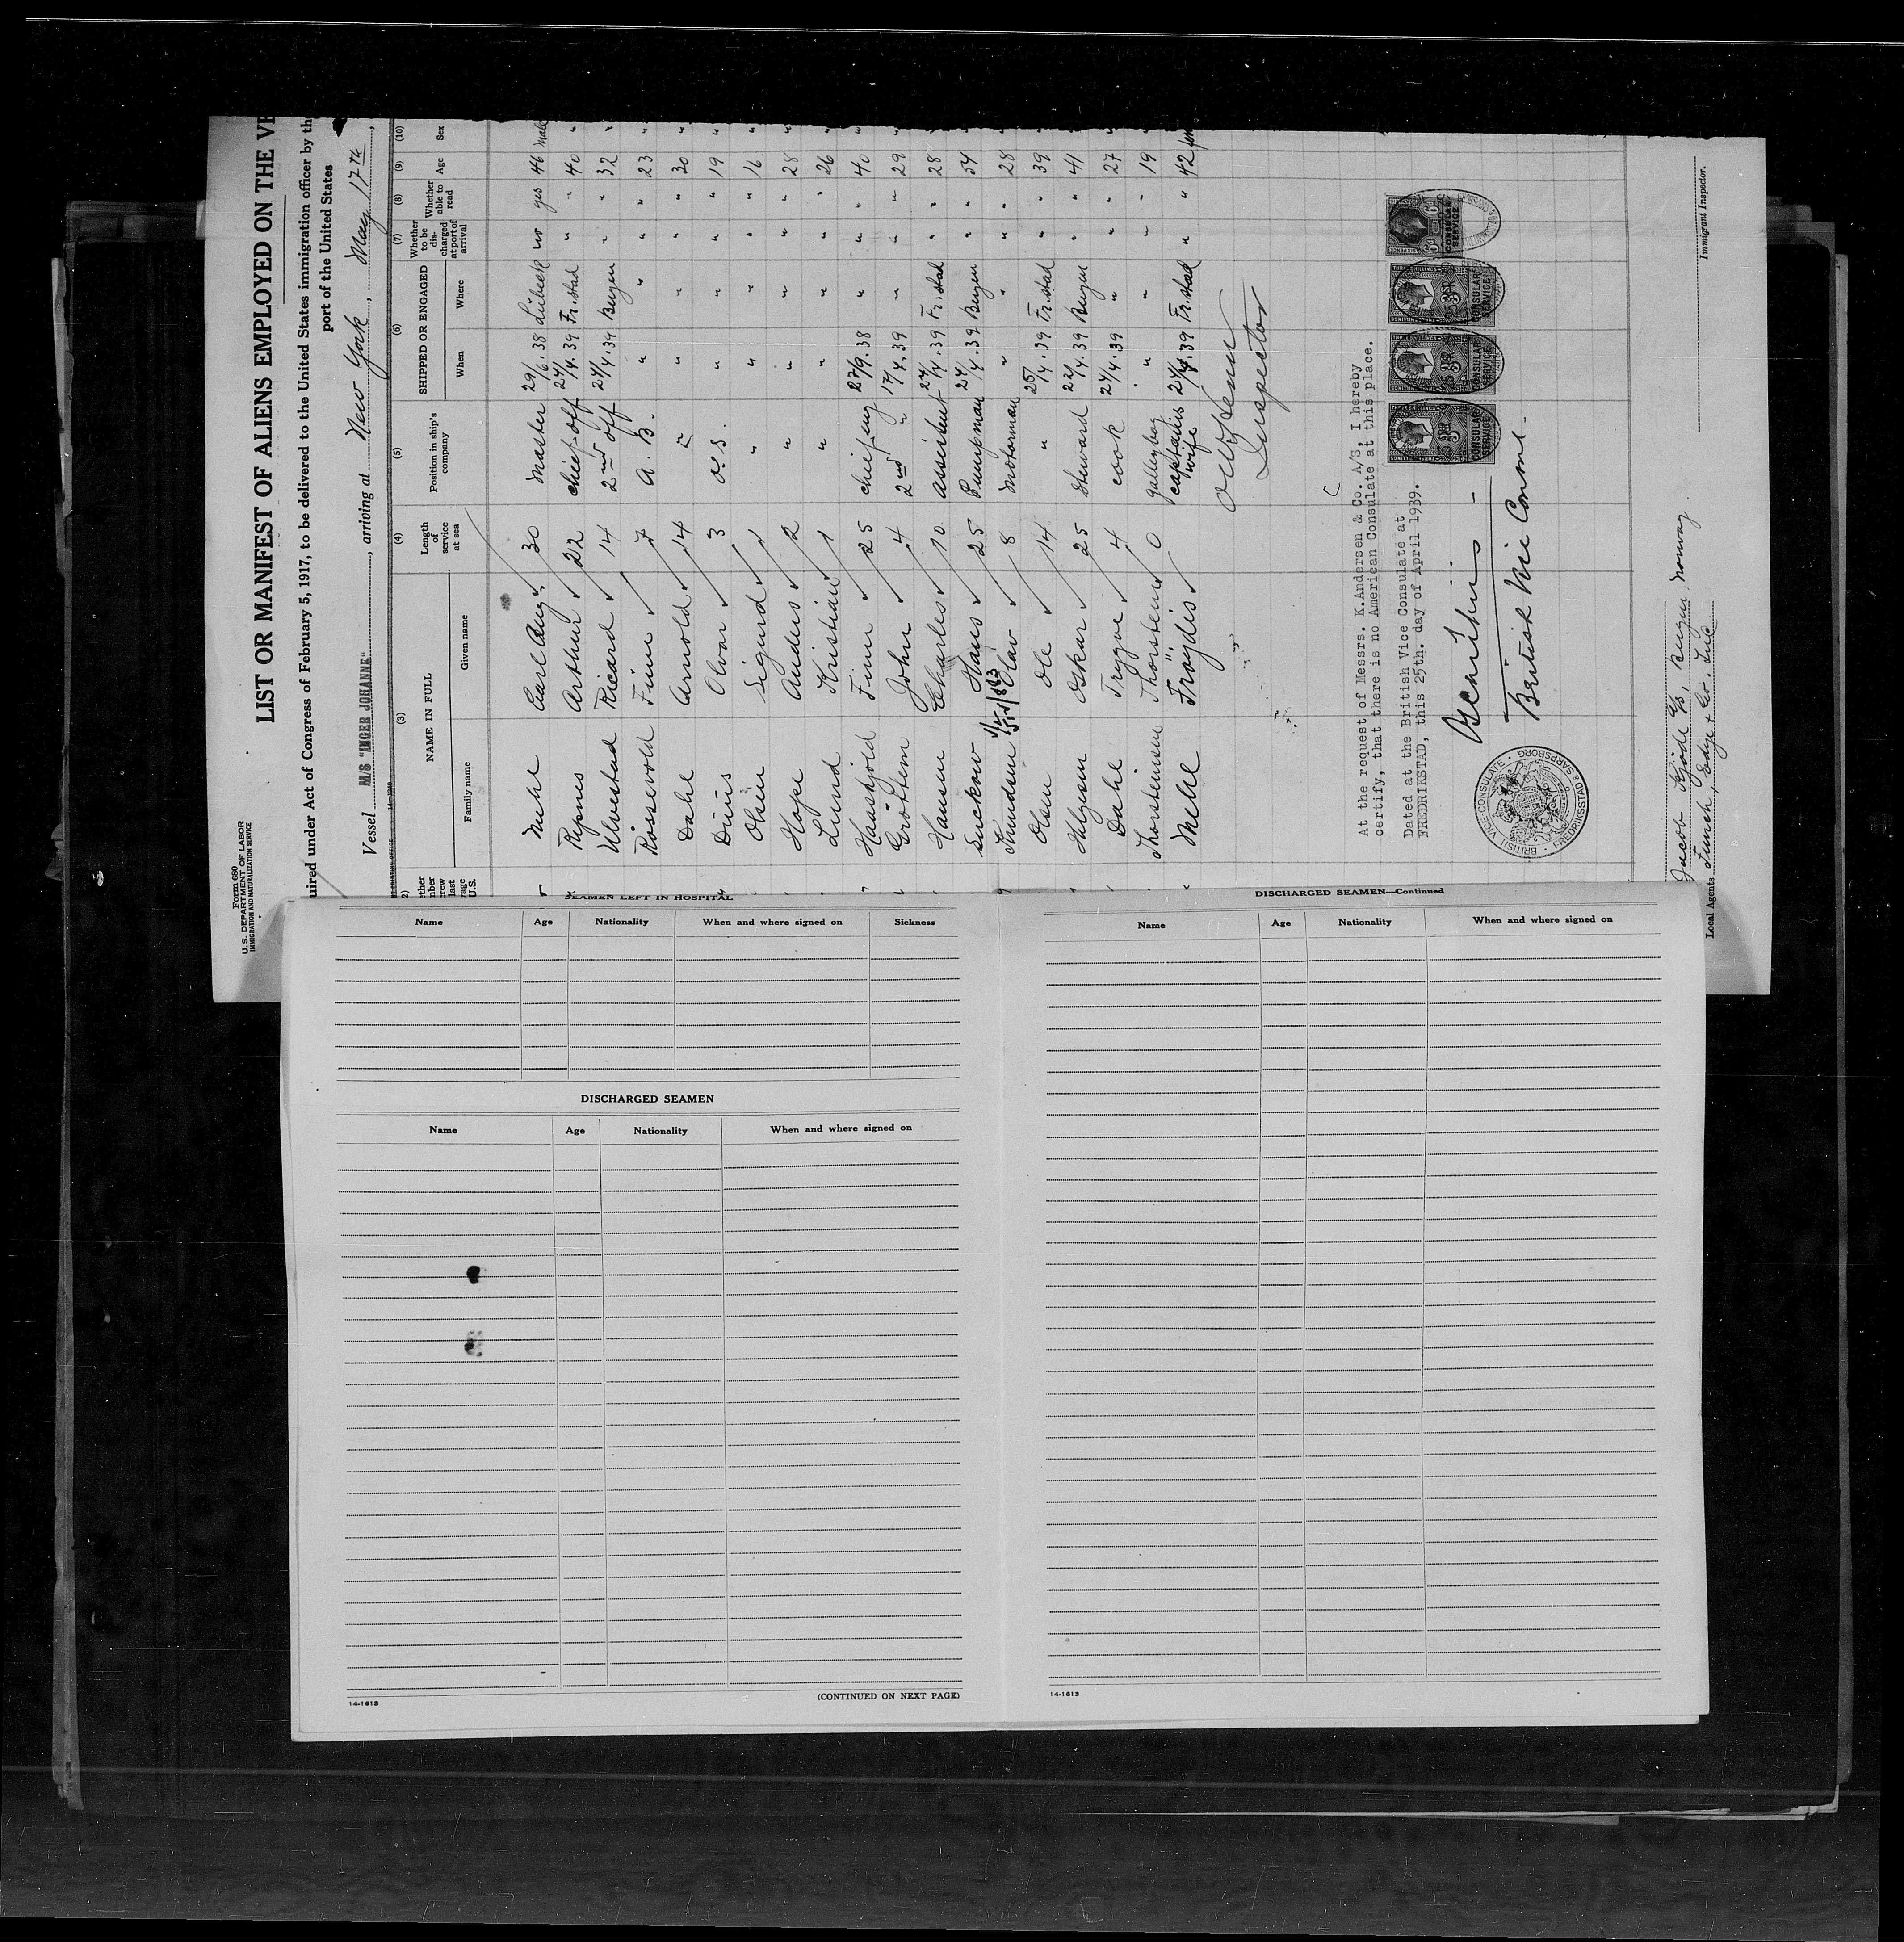 Form 680
U.S. DEPARTMENT OF LABOR
IMMIGRATION AND NATURALIZATION SERVICE
LIST OR MANIFEST OF ALIENS EMPLOYED ON THE VE
uired under Act of Congress of February 5, 1917, to be delivered to the United States immigration officer by th
port of the United States
Vessel M/S "INGER JOHANNE", arriving at New York, May 17th,
(3) (4) (5) (6) (7) (8) (9) (10)
NAME IN FULL Length of service at sea Position in ship's company SHIPPED OR ENGAGED Whether to be discharged at port of arrival Whether able to read Age Sex
Family name Given name When Where
Mehl Carl Aug. 30 Master 29/6.38 Lübeck no yes 46 male
Ripnes Arthur 22 chief off 24/4.39 Fr.stad " " 40 "
Ulvestad Ricard 14 2nd off 24/4.39 Bergen " " 32 "
Rösevold Finn 7 A.B. " " " " 23 "
Dahl Arnold 14 " " " " " 30 "
Olvar 3 O.S. " " " " 19 "
Olsen Sigurd 1 " " " " " 16 "
Hope Anders 2 " " " " " 28 "
Lund Kristian 1 " " " " " 26 "
Finn 25 chief eng 27/9.38 " " " 40 "
Gröttem John 4 2nd " 17/4.39 " " " 29 "
Hansen Charles 10 Assistent 24/4.39 Fr.stad " " 28 "
Suckow Hans 25 Pumpman 24/4.39 Bergen " " 54 "
Knudsen Olav 8 Motorman " " " " 28 "
Olsen Ole 14 " 25/4.39 Fr.stad " " 39 "
Helgesen Oskar 25 Steward 22/4.39 Bergen " " 41 "
Dahl Trygve 4 cook 24/4.39 " " " 27 "
Thorsteinsen Thorstein 0 galleyboy " " " " 19 "
Mehl Fröydis captains wife 24/4.39 Fr.stad " " 42
Inspector
At the request of Messrs. K.Andersen & Co. A/S, I hereby
certify, that there is no American Consulate at this place.
Dated at the British Vice Consulate at
FREDRIKSTAD, this 25th. day of April 1939.
British Vice Consul.
BRITISH VICE CONSULATE · FREDRIKSSTAD & SARPSBORG
CONSULAR SERVICE
CONSULAR SERVICE
CONSULAR SERVICE
CONSULAR SERVICE
Jacob Norway
Local Agents Funch, Edye & Co. Inc
Immigrant Inspector.
SEAMEN LEFT IN HOSPITAL
Name Age Nationality When and where signed on Sickness
DISCHARGED SEAMEN
Name Age Nationality When and where signed on
14-1613 (CONTINUED ON NEXT PAGE)
DISCHARGED SEAMEN—Continued
Name Age Nationality When and where signed on
14-1613